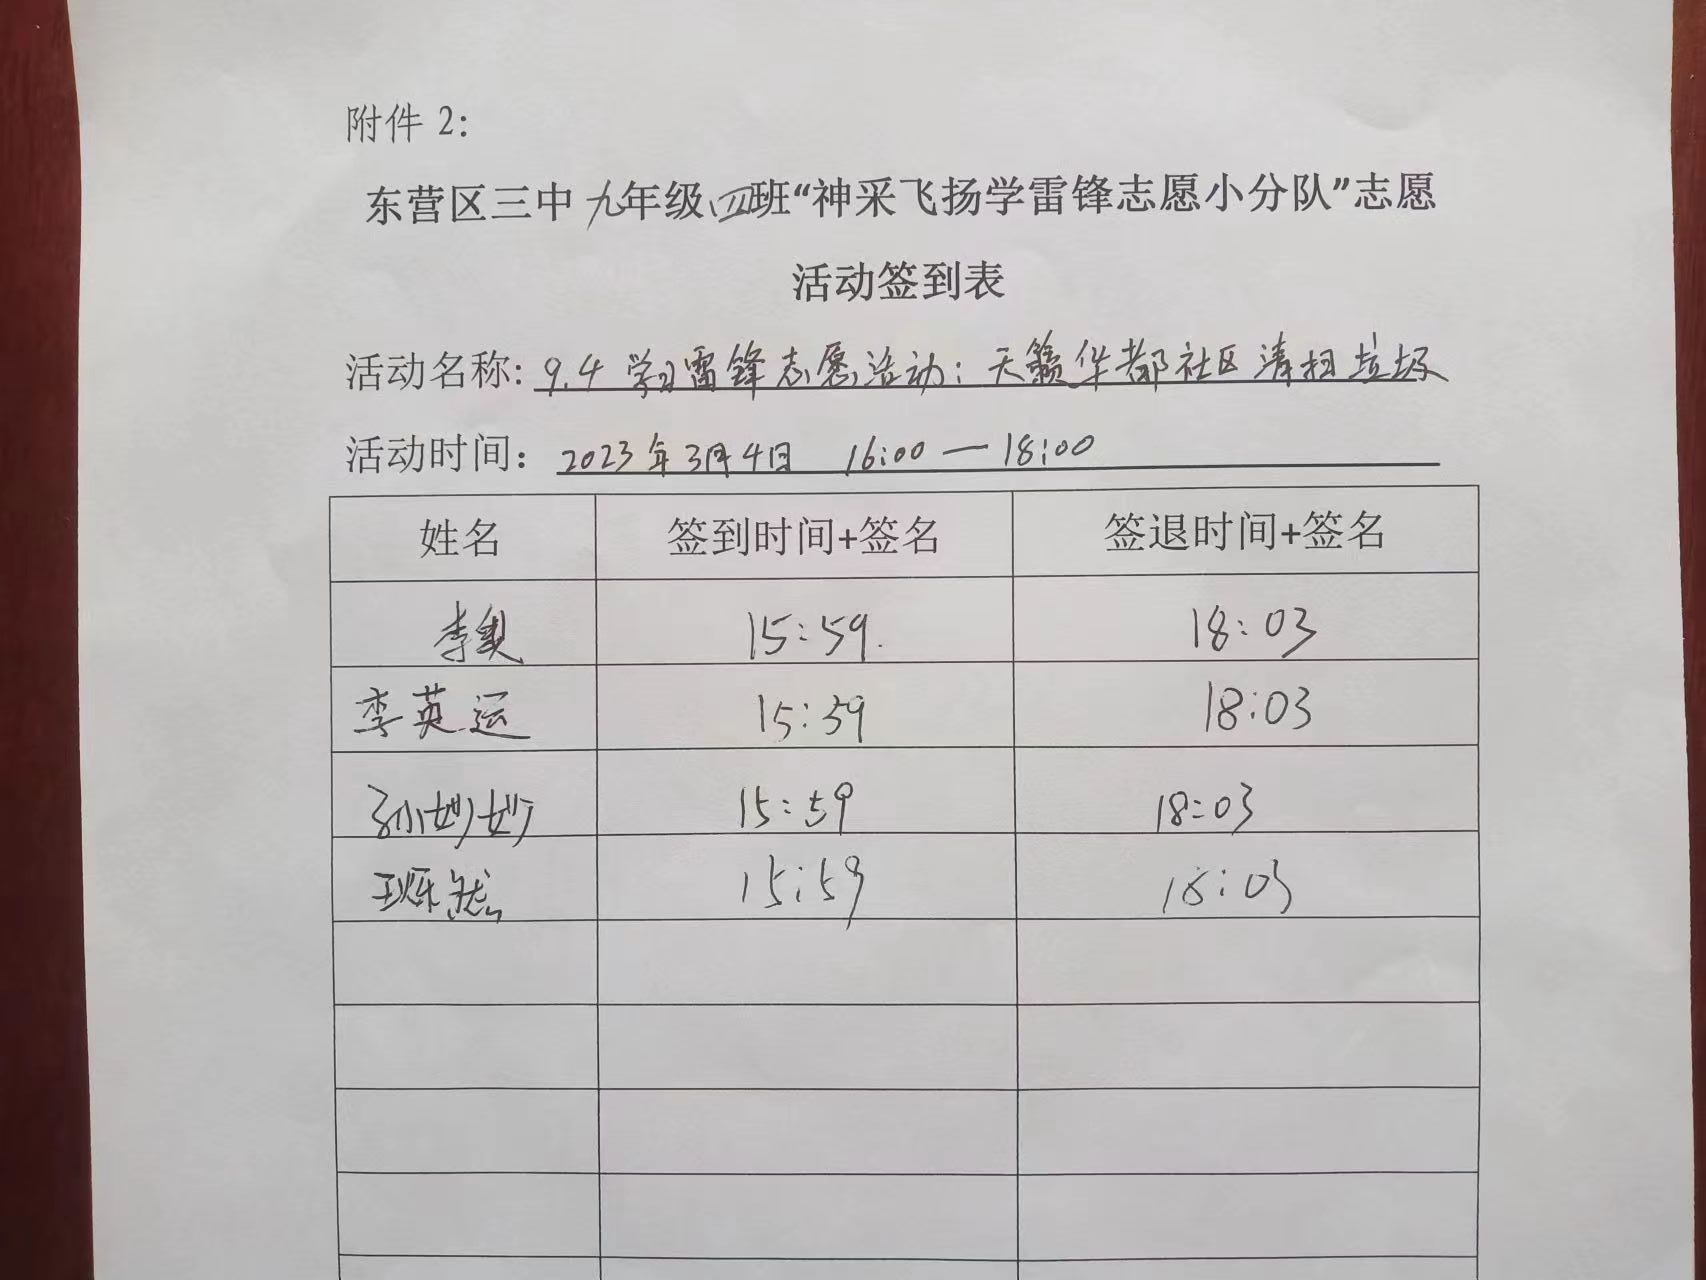 附件 2：
东营区三中九年级四班“神采飞扬学雷锋志愿小分队”志愿
活动签到表
活动名称: 9.4 学习雷锋志愿活动: 天籁华都社区清扫垃圾
活动时间: 2023年3月4日 16:00—18:00
姓名 签到时间+签名 签退时间+签名
李奥 15:59. 18:03
李英运 15:59 18:03
孙妙妙 15:59 18:03
15:59 18:03